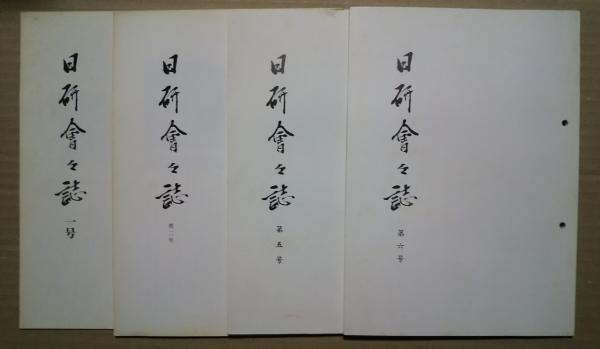 日研會々誌
一号
日研會々誌
第二号
日研會々誌
第五号
日研會々誌
第六号